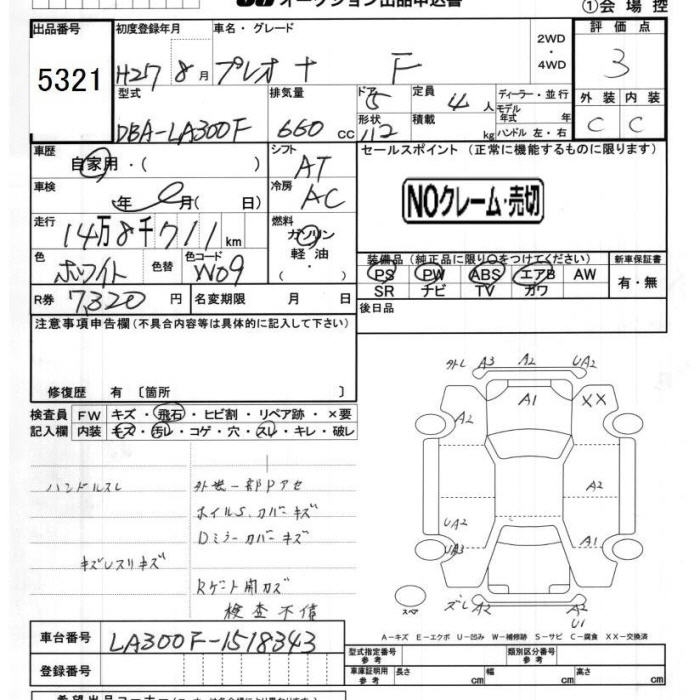 オークション出品申込書
①会場控
出品番号 初度登録年月 車名・グレード 2WD ・ 4WD 評価点
5321 H27 8月 プレオ + F 3
型式 排気量 ドア 5 定員 4人 ディーラー・並行 外装 内装
DBA-LA300F 660cc 形状 積載 kg モデル年式 年 ハンドル 左・右 C C
車歴 自家用・( ) シフト AT セールスポイント (正常に機能するものに限ります)
車検 年 月( 日) 冷房 AC NOクレーム・売切
走行 14万8千711km 燃料 ガソリン 軽油・( ・ )
色 ホワイト 色替 色コード W09 装備品(純正品に限り○をつけてください) 新車保証書
PS PW ABS エアB AW 有・無
SR ナビ TV カワ
R券 7,320円 名変期限 月 日 後日品
注意事項申告欄(不具合内容等は具体的に記入して下さい)
修復歴 有〔箇所 〕
検査員 FW キズ・飛石・ヒビ割・リペア跡・×要
記入欄 内装 キズ・汚レ・コゲ・穴・スレ・キレ・破レ
外し A3 A2 UA2
A1 XX
A2
A2
UA2
UA3 A1
スペア ズレ A2 A2
U1
ハンドルスレ 外装一部Pアセ
ホイルS、カバーキズ
Dミラーカバーキズ
キズレスリキズ
Rゲート開カズ
検査不備
A-キズ E-エクボ U-凹み W-補修跡 S-サビ C-腐食 XX-交換済
車台番号 LA300F-1518343
型式指定番号 参考 類別区分番号 参考
登録番号 車庫証明用 参考 長さ cm 幅 cm 高さ cm
希望出品コーナー